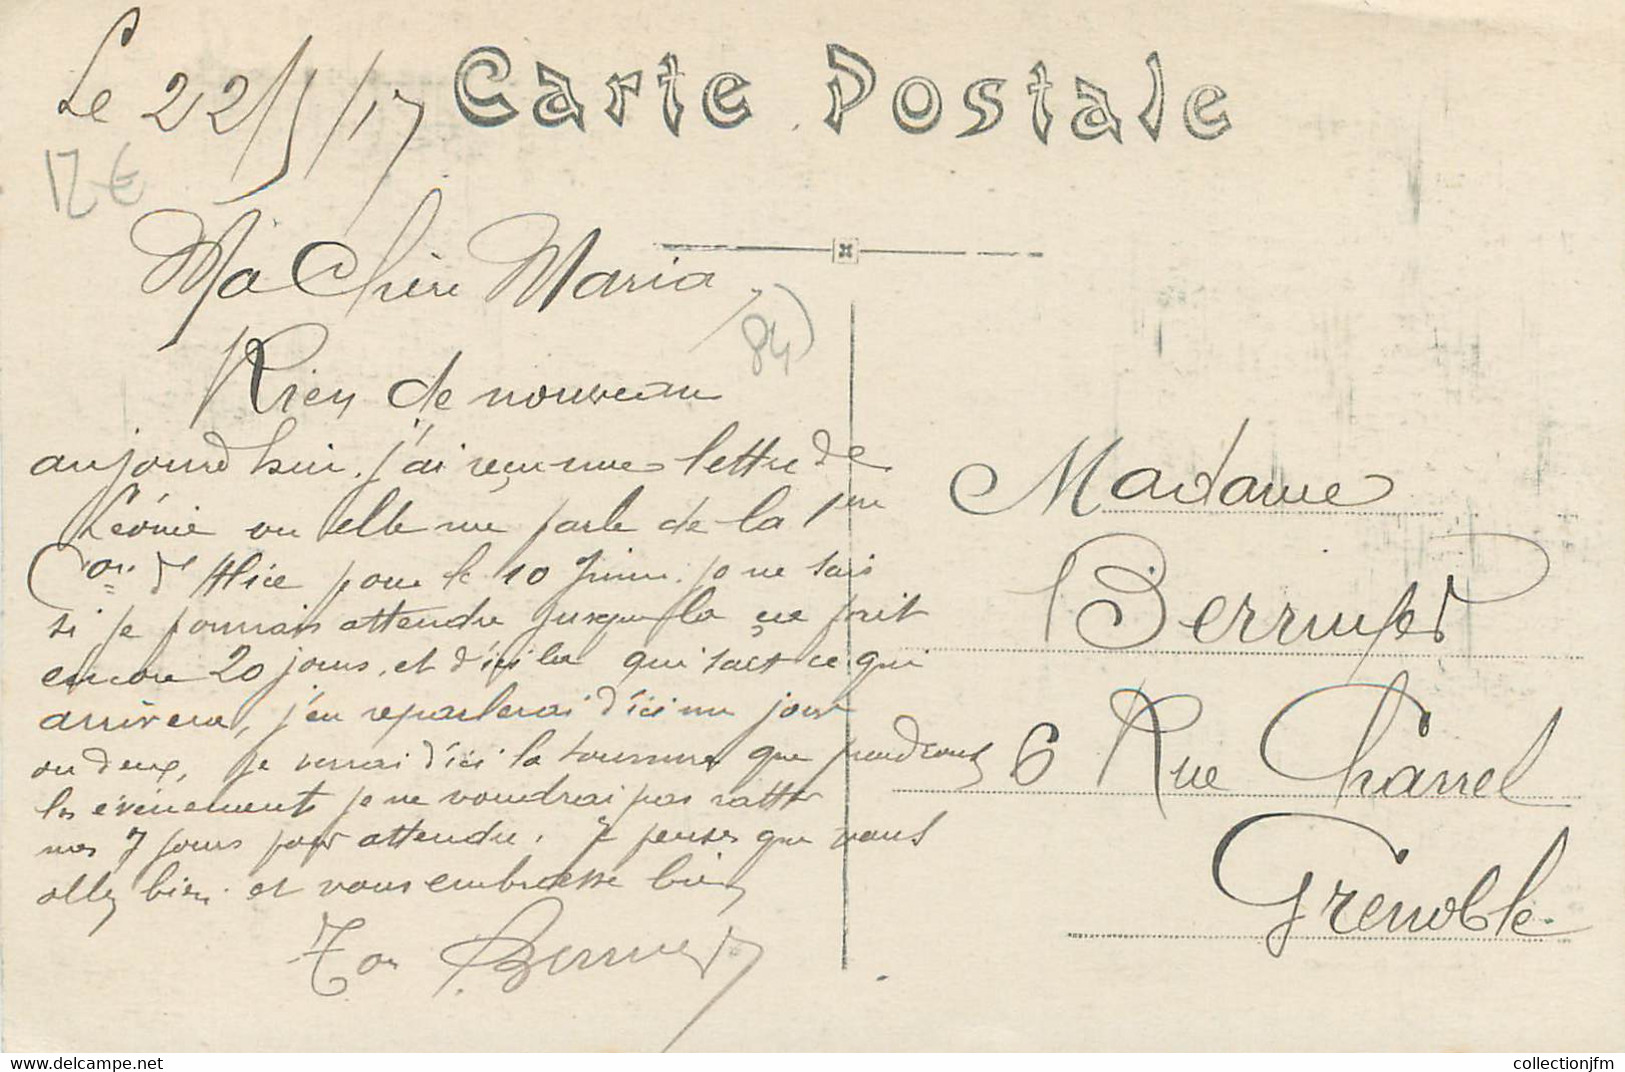 Le 22/5/17
Carte Postale
12 €
Ma Chère Maria
84)
Rien de nouveau
aujourd'hui. j'ai reçu une lettre de
Léonie ou elle me parle de la 1ere
Con d'Alice pour le 10 Juin. je ne sais
si je pourrais attendre jusque la ça fait
encore 20 jours. et d'ici la qui sait ce qui
arrivera, j'en reparlerai d'ici un jour
ou deux, je verrai d'ici la tournure que prendront
les évènements je ne voudrai pas
mes 7 jours pour attendre. Je penses que vous
allez bien. et vous embrasse bien
Ton
Madame
6 Rue Charrel
Grenoble.
collectionjfm